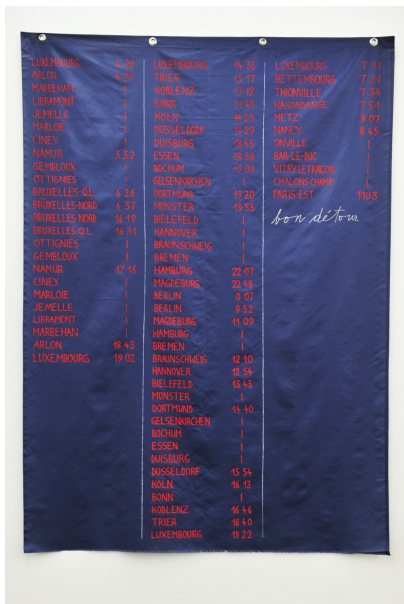 LUXEMBOURG 4 26
ARLON
MARBEHAN |
LIBRAMONT |
JEMELLE |
MARLOIE |
CINEY |
NAMUR 5 52
GEMBLOUX |
OTTIGNIES |
BRUXELLES-Q.L. 6 26
BRUXELLES-NORD 6 37
BRUXELLES-NORD 16 19
BRUXELLES-Q.L. 16 31
OTTIGNIES |
GEMBLOUX |
NAMUR 17 16
CINEY |
MARLOIE |
JEMELLE |
LIBRAMONT |
MARBEHAN |
ARLON 18 43
LUXEMBOURG 19 02
LUXEMBOURG 14 33
TRIER 15 17
KOBLENZ
BONN
KÖLN
DÜSSELDORF
DUISBURG
ESSEN 18 58
BOCHUM
GELSENKIRCHEN |
DORTMUND 19 20
MÜNSTER 19 55
BIELEFELD |
HANNOVER |
BRAUNSCHWEIG |
BREMEN |
HAMBURG 22 07
MAGDEBURG 22 48
BERLIN 0 07
BERLIN 9 52
MAGDEBURG 11 09
HAMBURG |
BREMEN |
BRAUNSCHWEIG 12 10
HANNOVER 12 54
BIELEFELD 13 43
MÜNSTER |
DORTMUND 14 40
GELSENKIRCHEN |
BOCHUM |
ESSEN |
DUISBURG |
DÜSSELDORF 15 54
KÖLN 16 13
BONN |
KOBLENZ 16 46
TRIER 18 40
LUXEMBOURG 19 22
LUXEMBOURG 7 11
BETTEMBOURG 7 21
THIONVILLE 7 34
HAGONDANGE 7 51
METZ 8 07
NANCY 8 45
ONVILLE |
BAR-LE-DUC |
VITRY LE FRANÇOIS |
CHALONS CHAMP |
PARIS-EST 11 03
bon détour